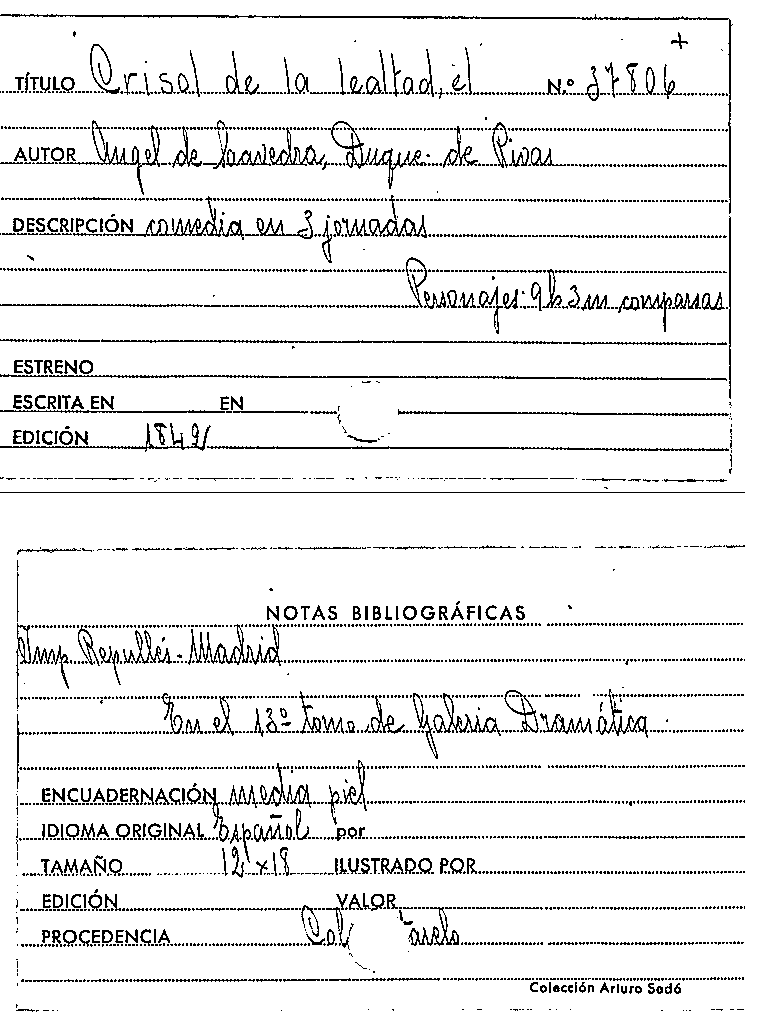 TÍTULO Crisol de la lealtad, el N.º 37806 +
AUTOR Angel de Saavedra, Duque de Rivas
DESCRIPCIÓN comedia en 3 jornadas
Personajes: 9 h 3 m comparsas
ESTRENO
ESCRITA EN EN
EDICIÓN 1849
NOTAS BIBLIOGRÁFICAS
Imp Repullés - Madrid
En el 13º tomo de Galeria Dramática
ENCUADERNACIÓN media piel
IDIOMA ORIGINAL Español por
TAMAÑO 12 x 18 ILUSTRADO POR
EDICIÓN VALOR
PROCEDENCIA Col
Colección Arturo Sedó